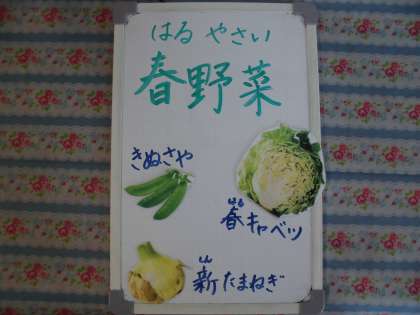 はる やさい
春野菜
きぬさや
はる
春キャベツ
しん
新たまねぎ